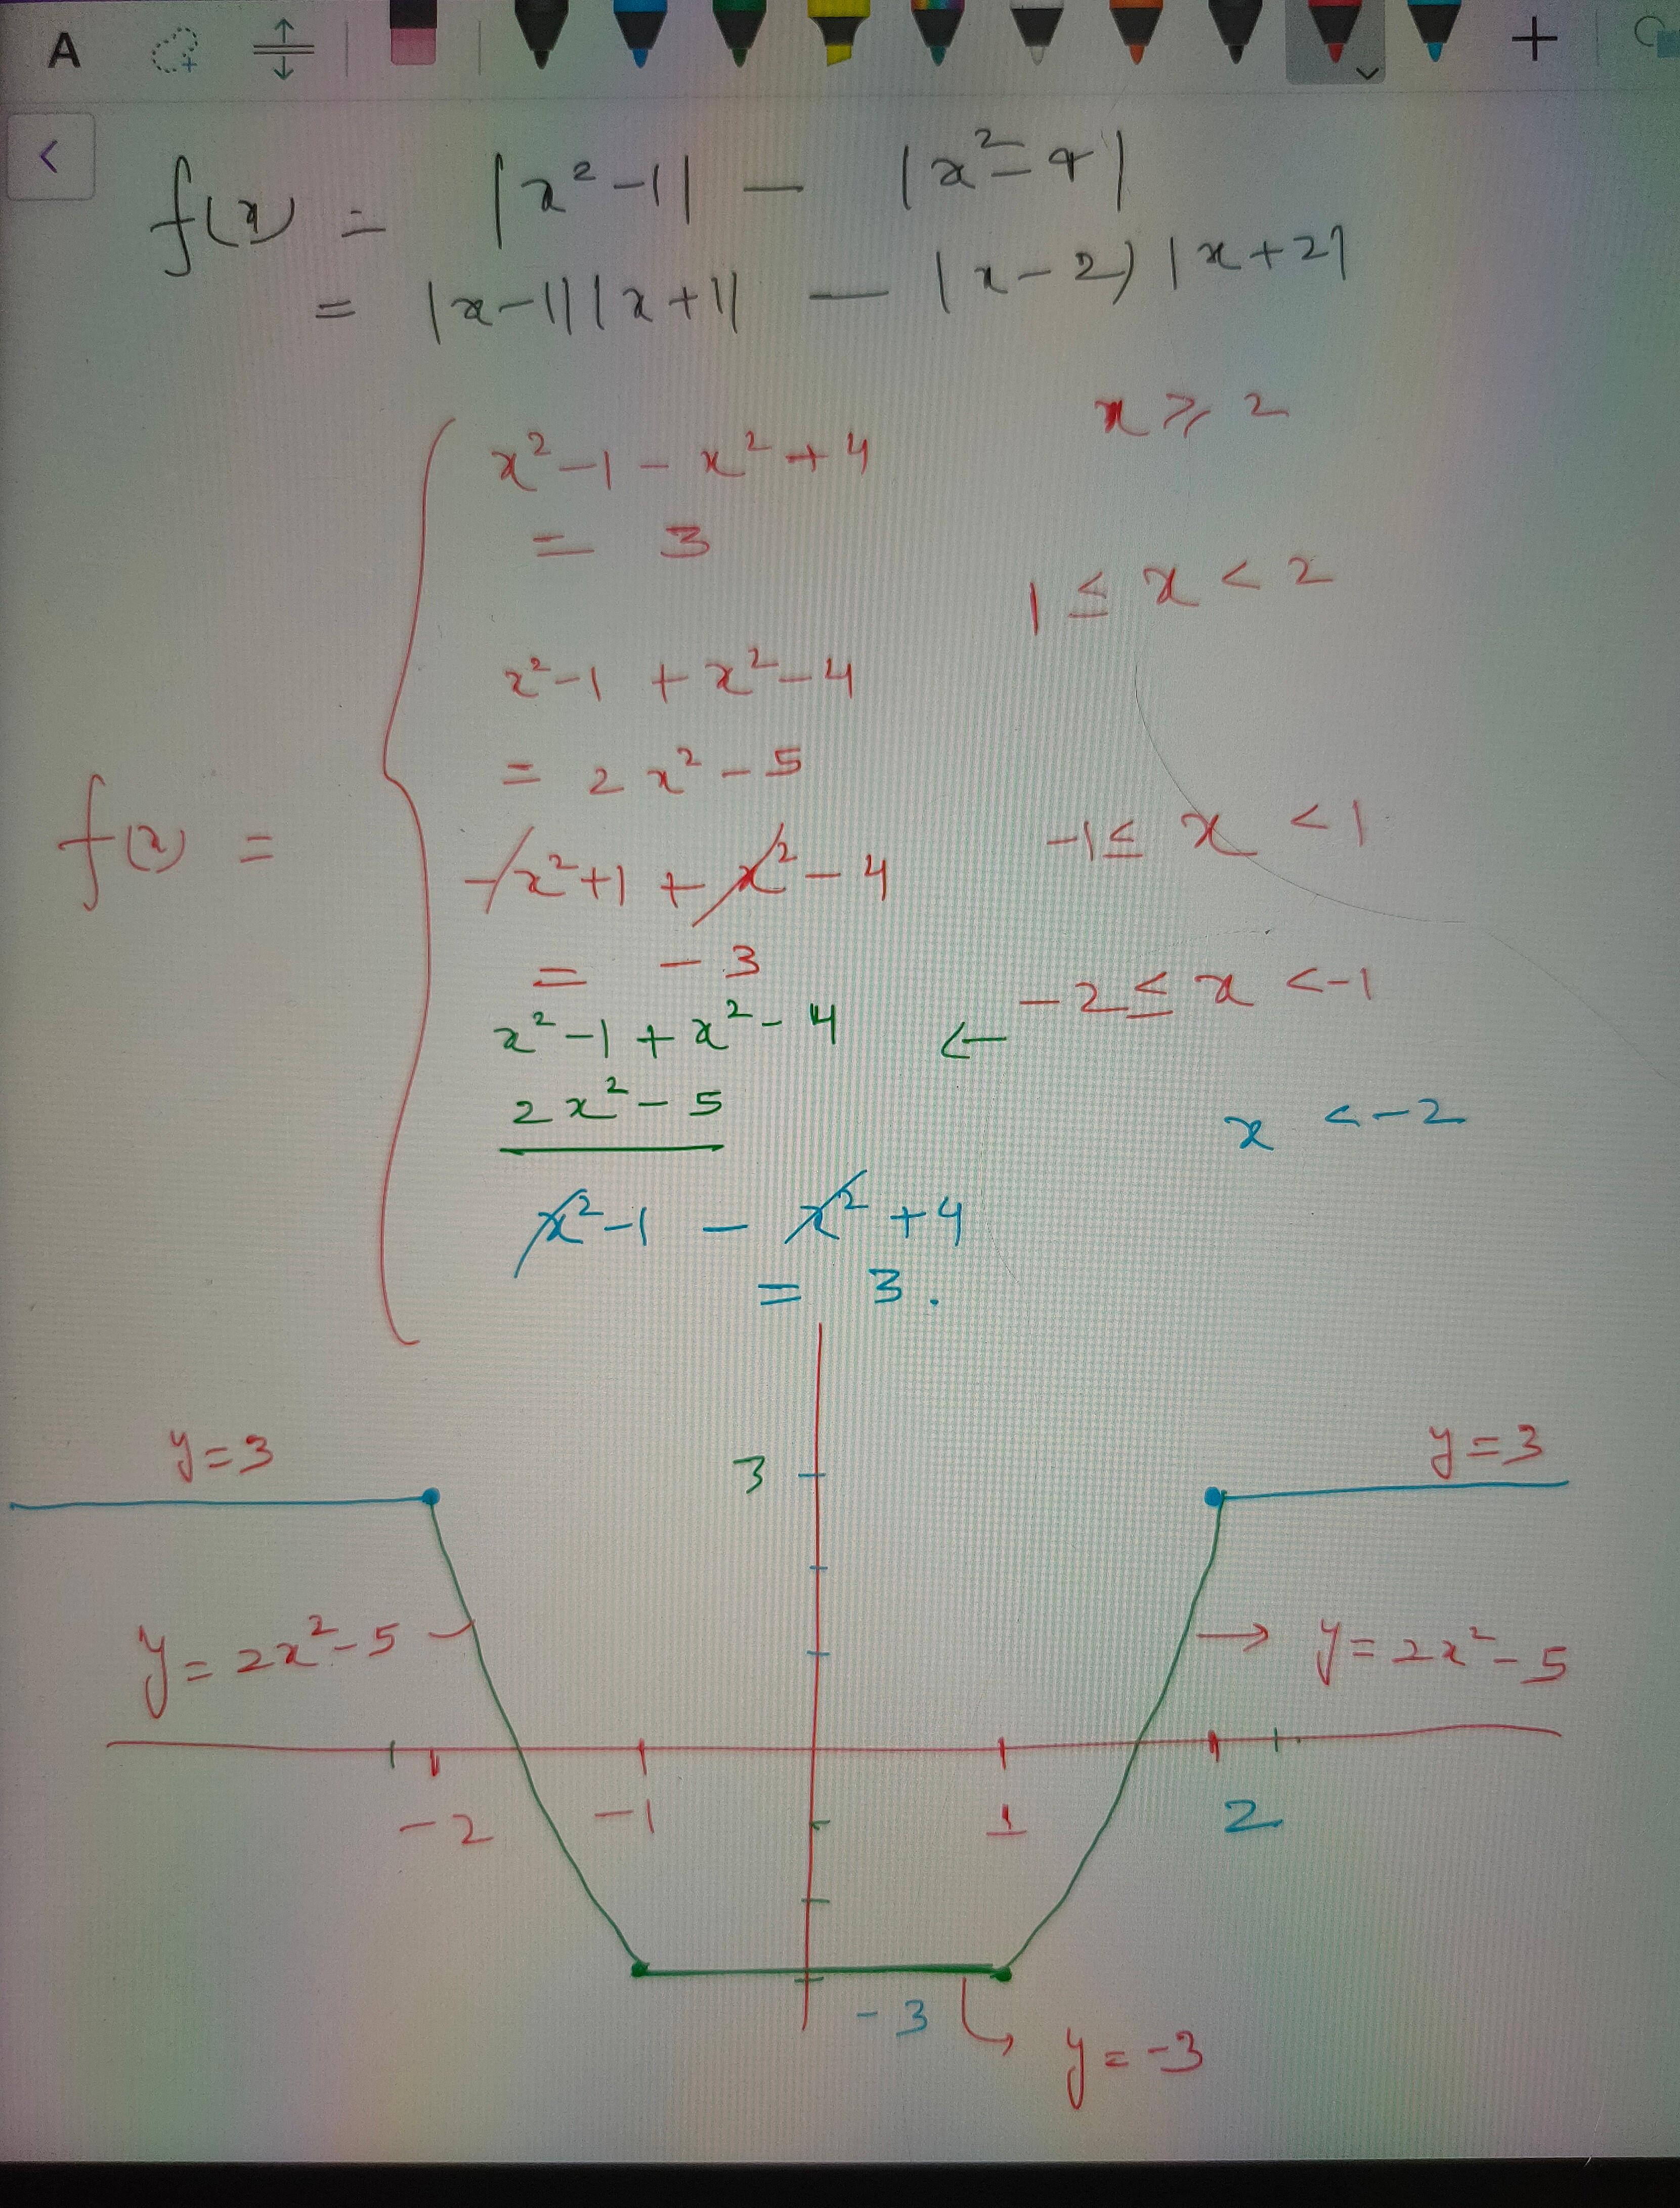 A
f(x) = |x²-1| - |x²-4|
= |x-1||x+1| - |x-2||x+2|
x²-1-x²+4 x ≥ 2
= 3
1 ≤ x < 2
x²-1 + x²-4
= 2x²-5
f(x) =
-x²+1 + x²-4 -1 ≤ x < 1
= -3
x²-1+x²-4 ← -2 ≤ x < -1
2x²-5
x < -2
x²-1 - x²+4
= 3.
y=3 3 y=3
y=2x²-5 → y=2x²-5
-2 -1 1 2
-3
y=-3